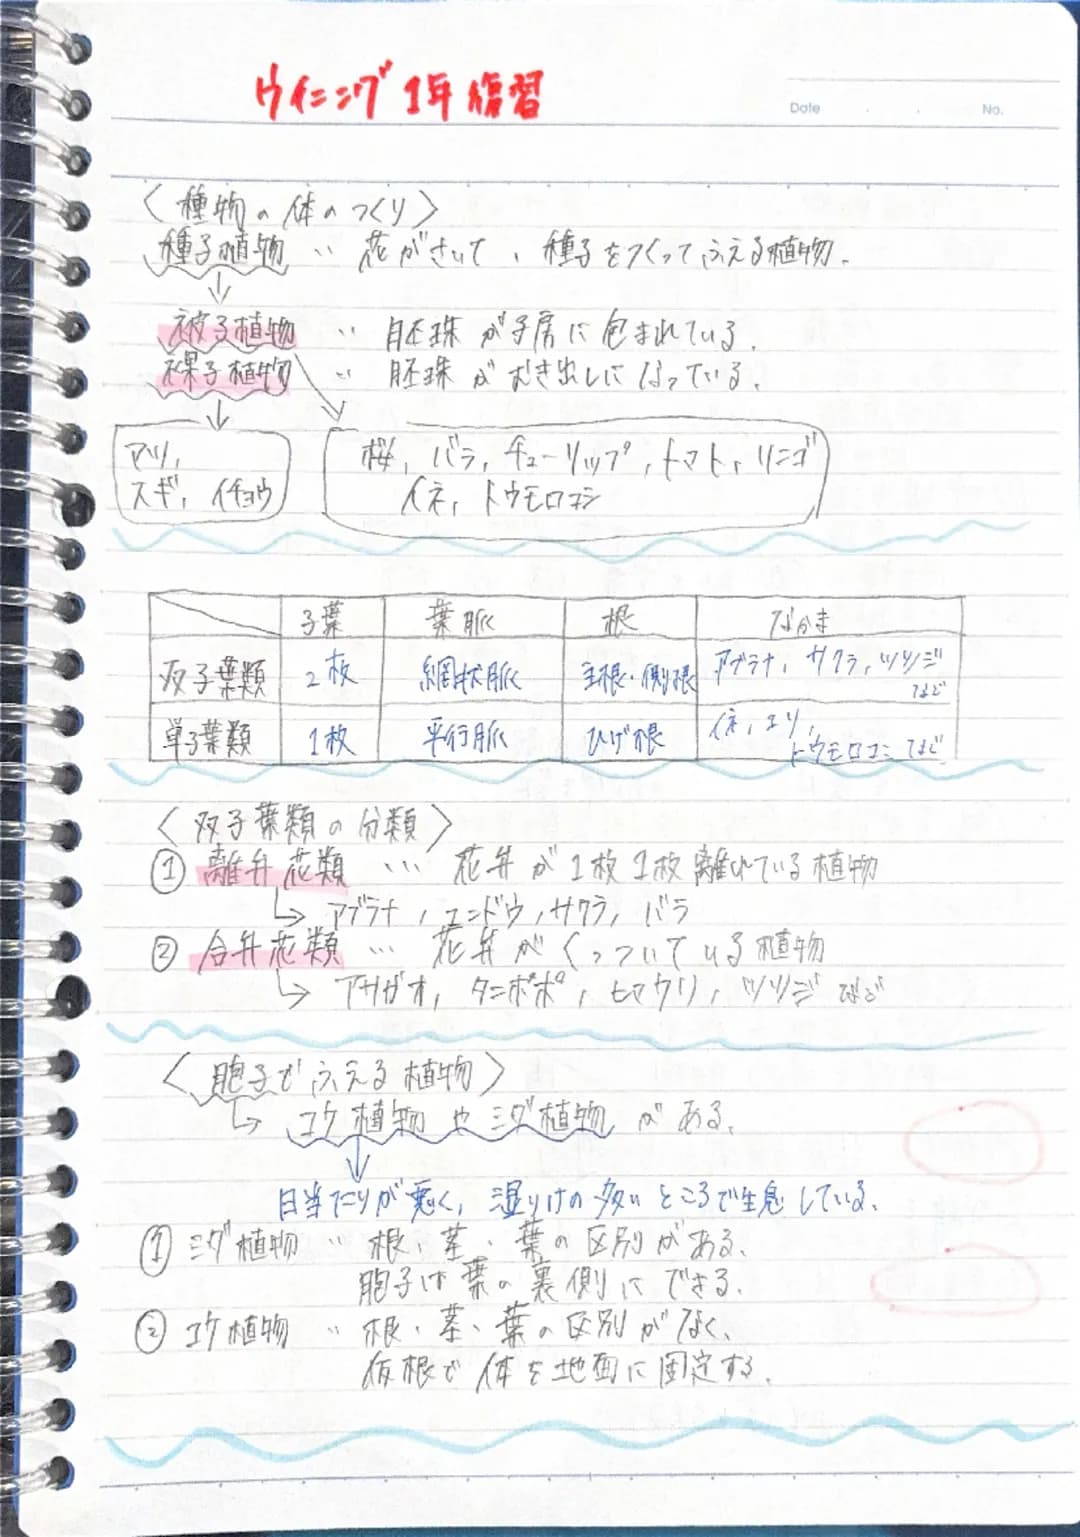 ウイニング 1年 復習
Date . . No.
〈種物の体のつくり〉
種子植物 … 花がさいて、種子をつくってふえる植物。
↓
被子植物 … 胚珠が子房に包まれている。
裸子植物 … 胚珠がむき出しになっている。
マツ, 
スギ, イチョウ
桜, バラ, チューリップ, トマト, リンゴ
イネ, トウモロコシ
子葉 葉脈 根 なかま
双子葉類 2枚 網状脈 主根・側根 アブラナ, サクラ, ツツジ など
単子葉類 1枚 平行脈 ひげ根 イネ, ユリ, トウモロコシ など
〈双子葉類の分類〉
① 離弁花類 … 花弁が1枚1枚離れている植物
↳ アブラナ, エンドウ, サクラ, バラ
② 合弁花類 … 花弁がくっついている植物
↳ アサガオ, タンポポ, ヒマワリ, ツツジ など
〈胞子でふえる植物〉
↳ コケ植物やシダ植物がある。
↓
日当たりが悪く, 湿りけの多いところで生息している。
① シダ植物 … 根・茎・葉の区別がある。
胞子は葉の裏側にできる。
② コケ植物 … 根・茎・葉の区別がなく、
仮根で体を地面に固定する。